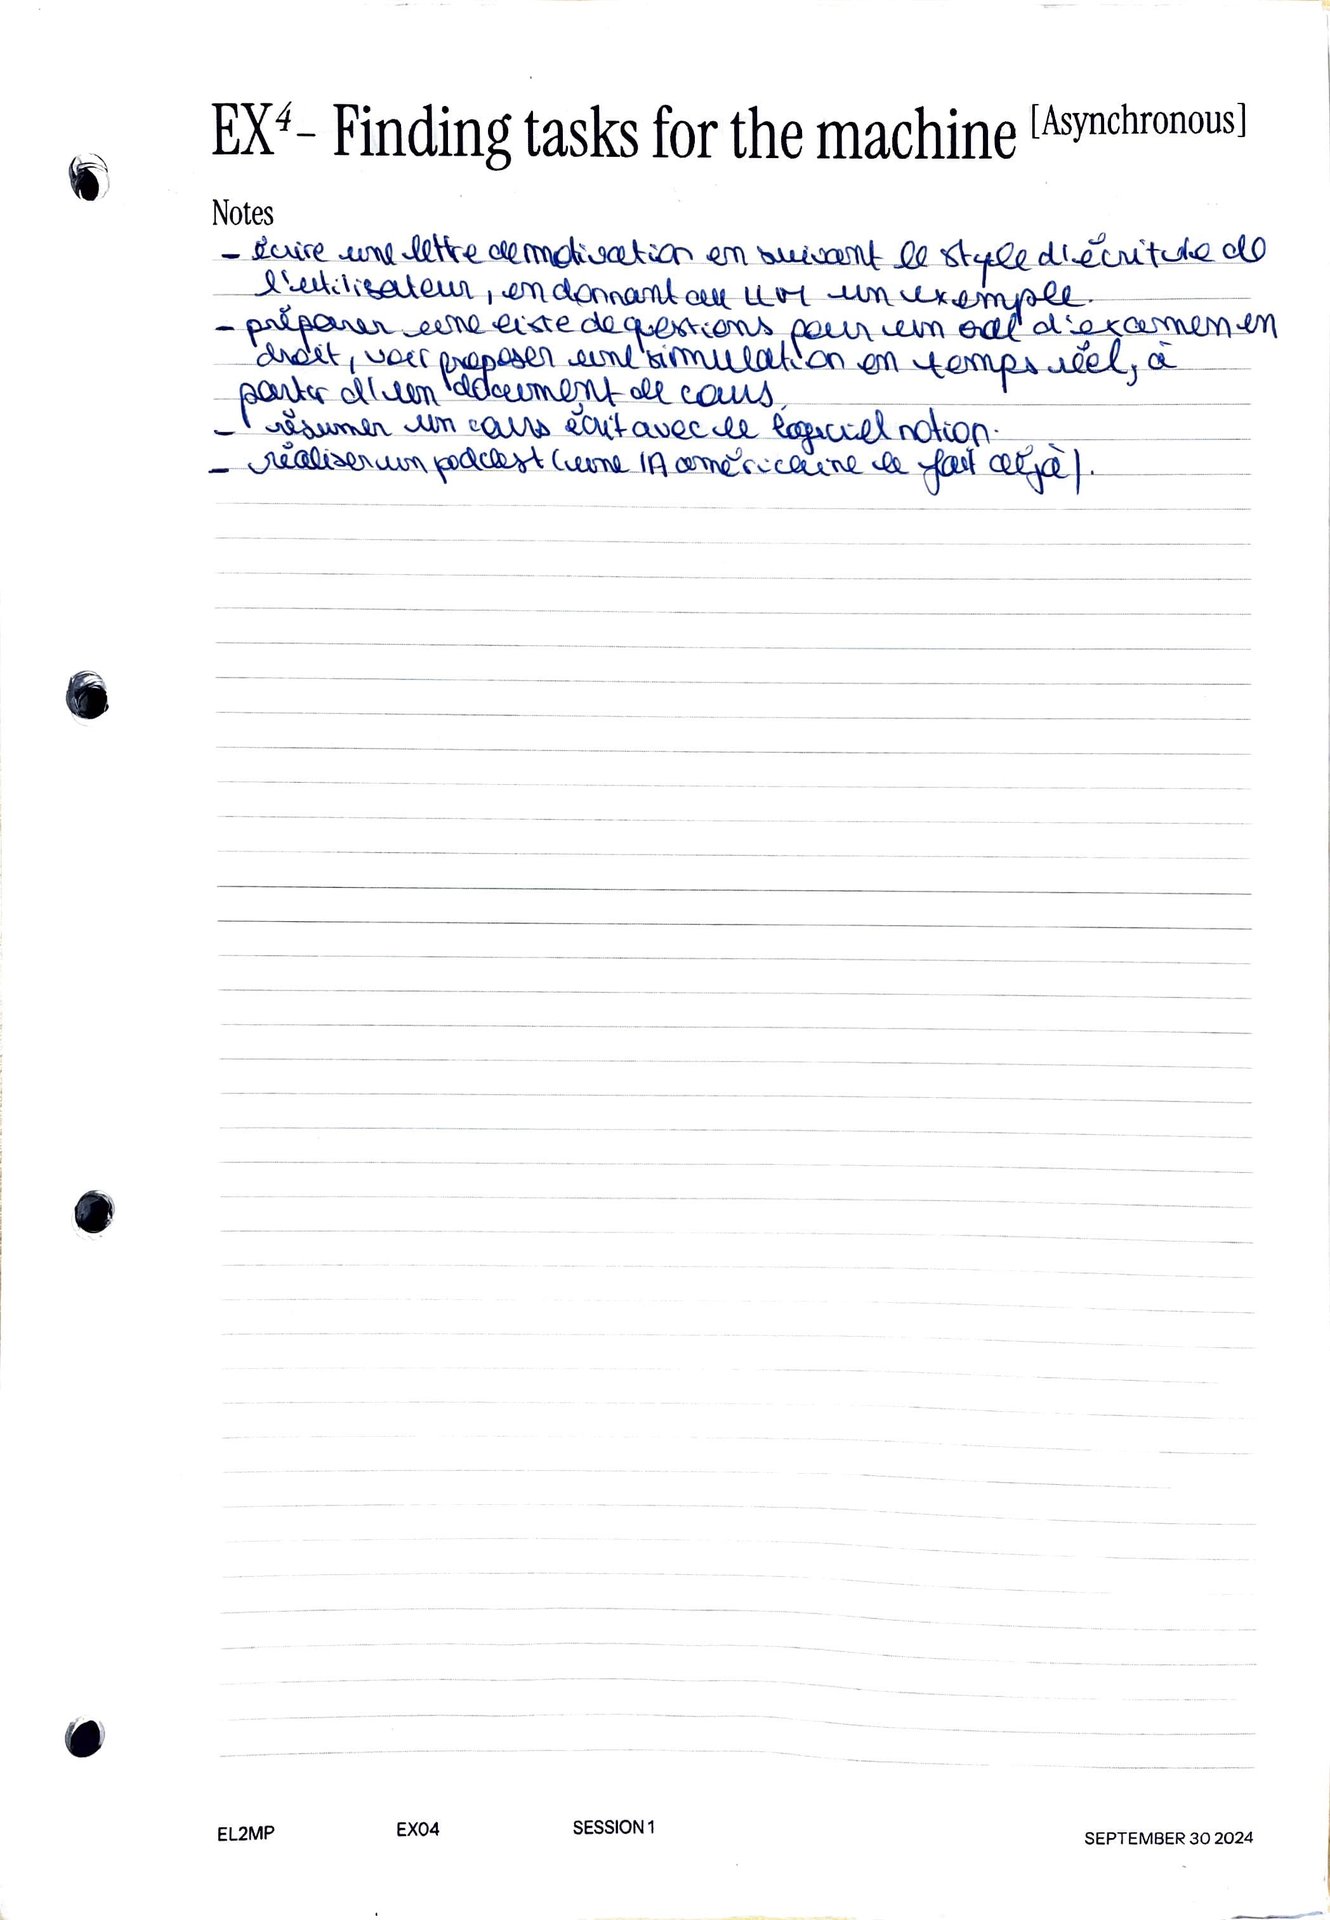 EX⁴ – Finding tasks for the machine [Asynchronous]
Notes
– écrire une lettre de motivation en suivant le style d'écriture de
l'utilisateur, en donnant au un exemple.
– préparer une liste de questions pour un oral d'examen en
droit, voir proposer une simulation en temps réel, à
partir d'un document de cours.
– résumer un cours écrit avec le logiciel notion.
– réaliser un podcast (une IA américaine le fait déjà).
EL2MP EX04 SESSION 1 SEPTEMBER 30 2024